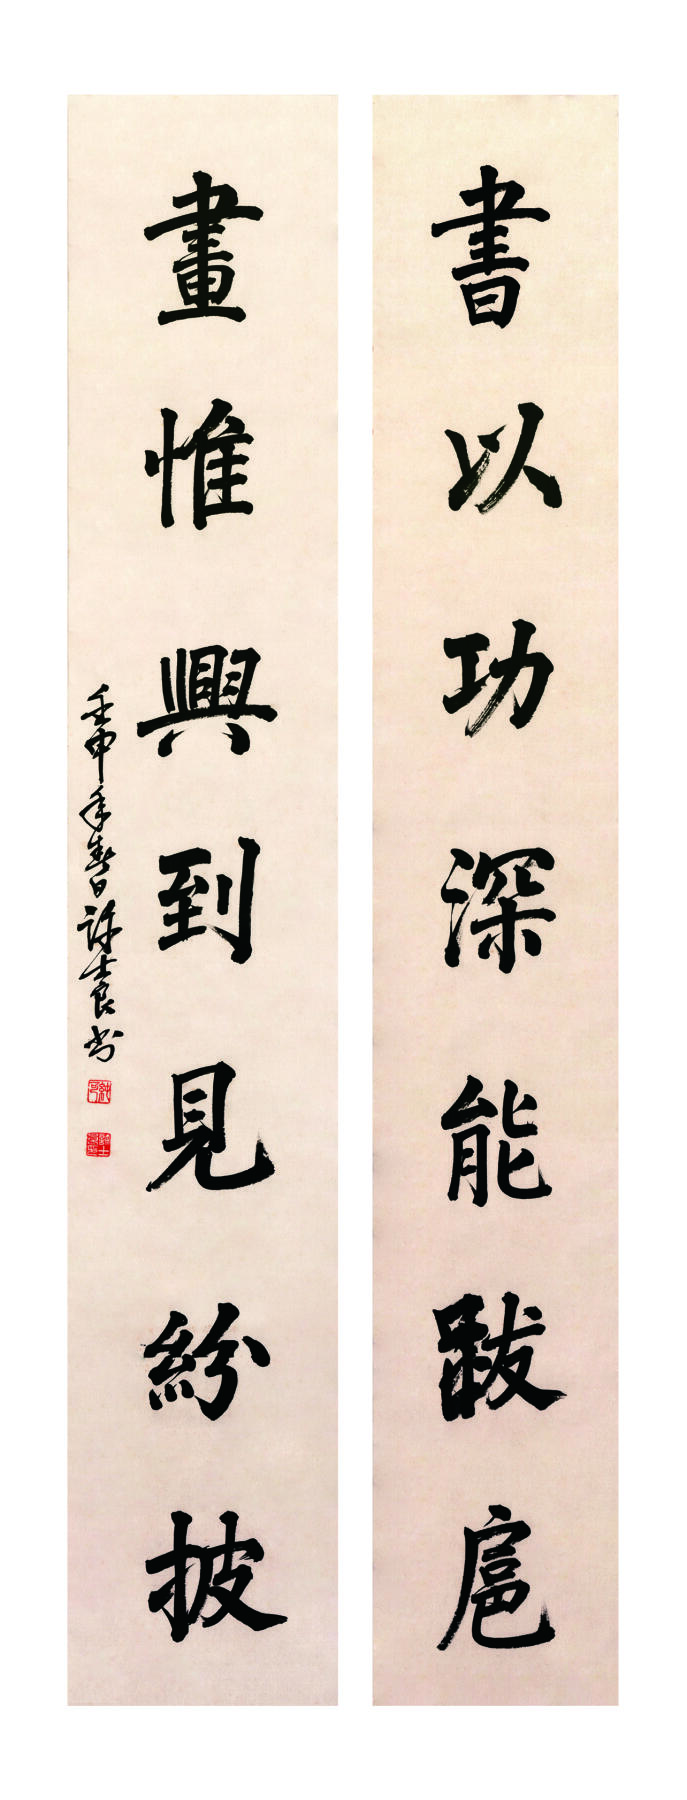 書以功深能跋扈
畫惟興到見紛披
壬申年春日許士良书